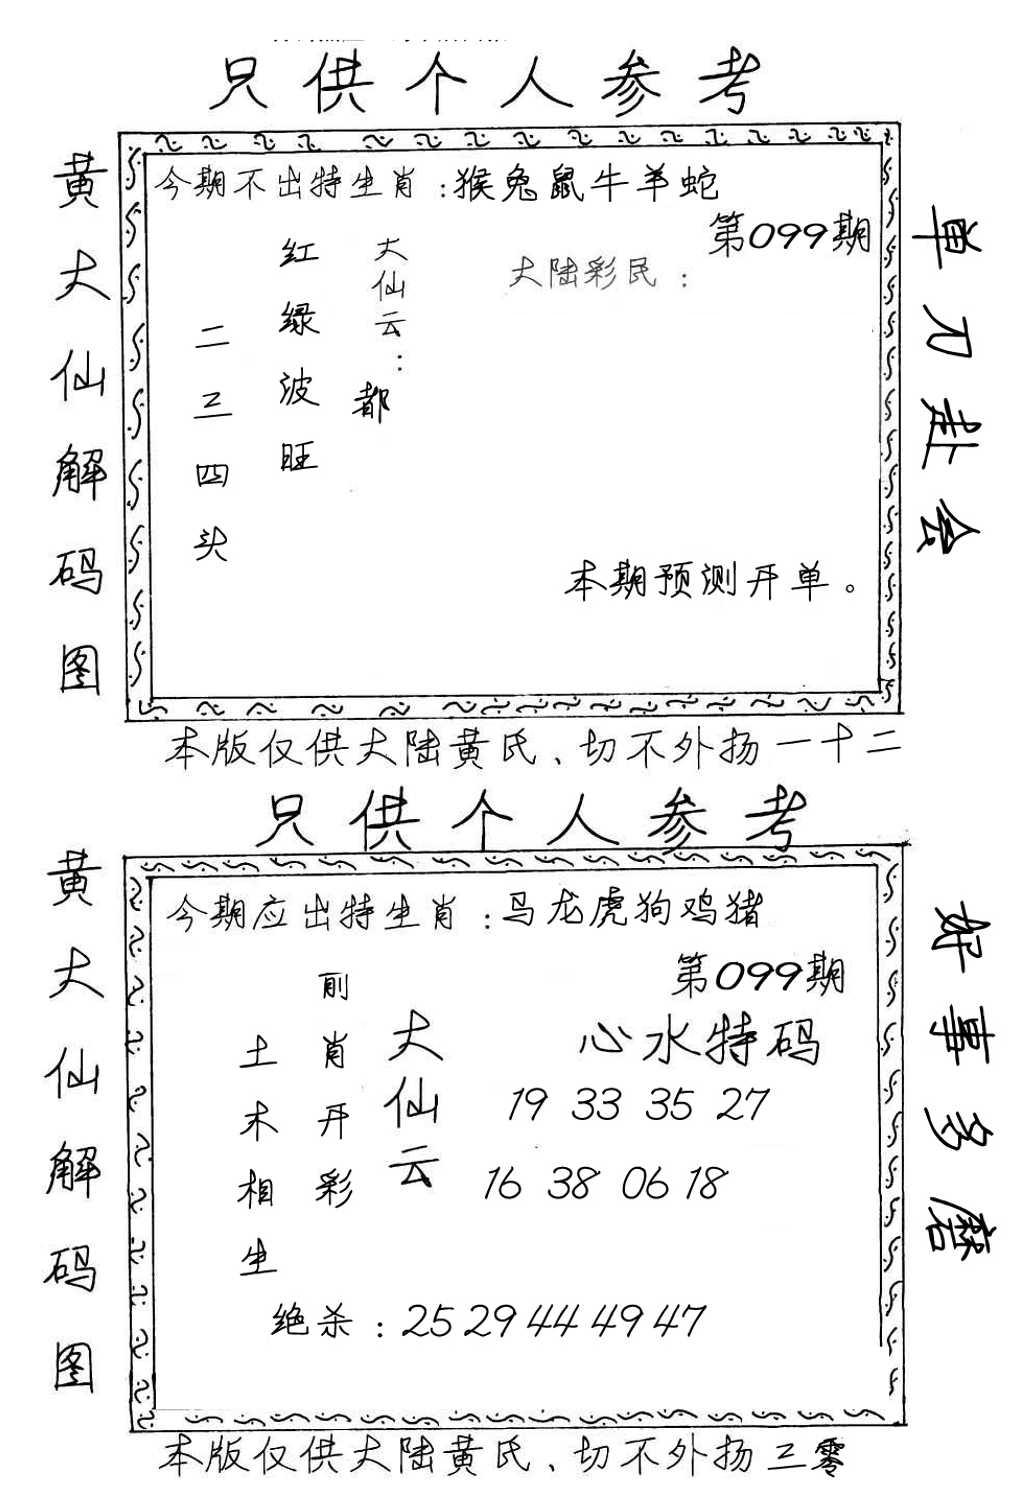 只供个人参考
黄大仙解码图
今期不出特生肖:猴兔鼠牛羊蛇
第099期
大陆彩民:
大仙云:
都
红绿波旺
二三四头
本期预测开单。
单刀赴会
本版仅供大陆黄氏、切不外扬一十二
只供个人参考
黄大仙解码图
今期应出特生肖:马龙虎狗鸡猪
第099期
心水特码
19 33 35 27
16 38 06 18
大仙云
前肖开彩
土木相生
绝杀:25 29 44 49 47
好事多磨
本版仅供大陆黄氏、切不外扬三零